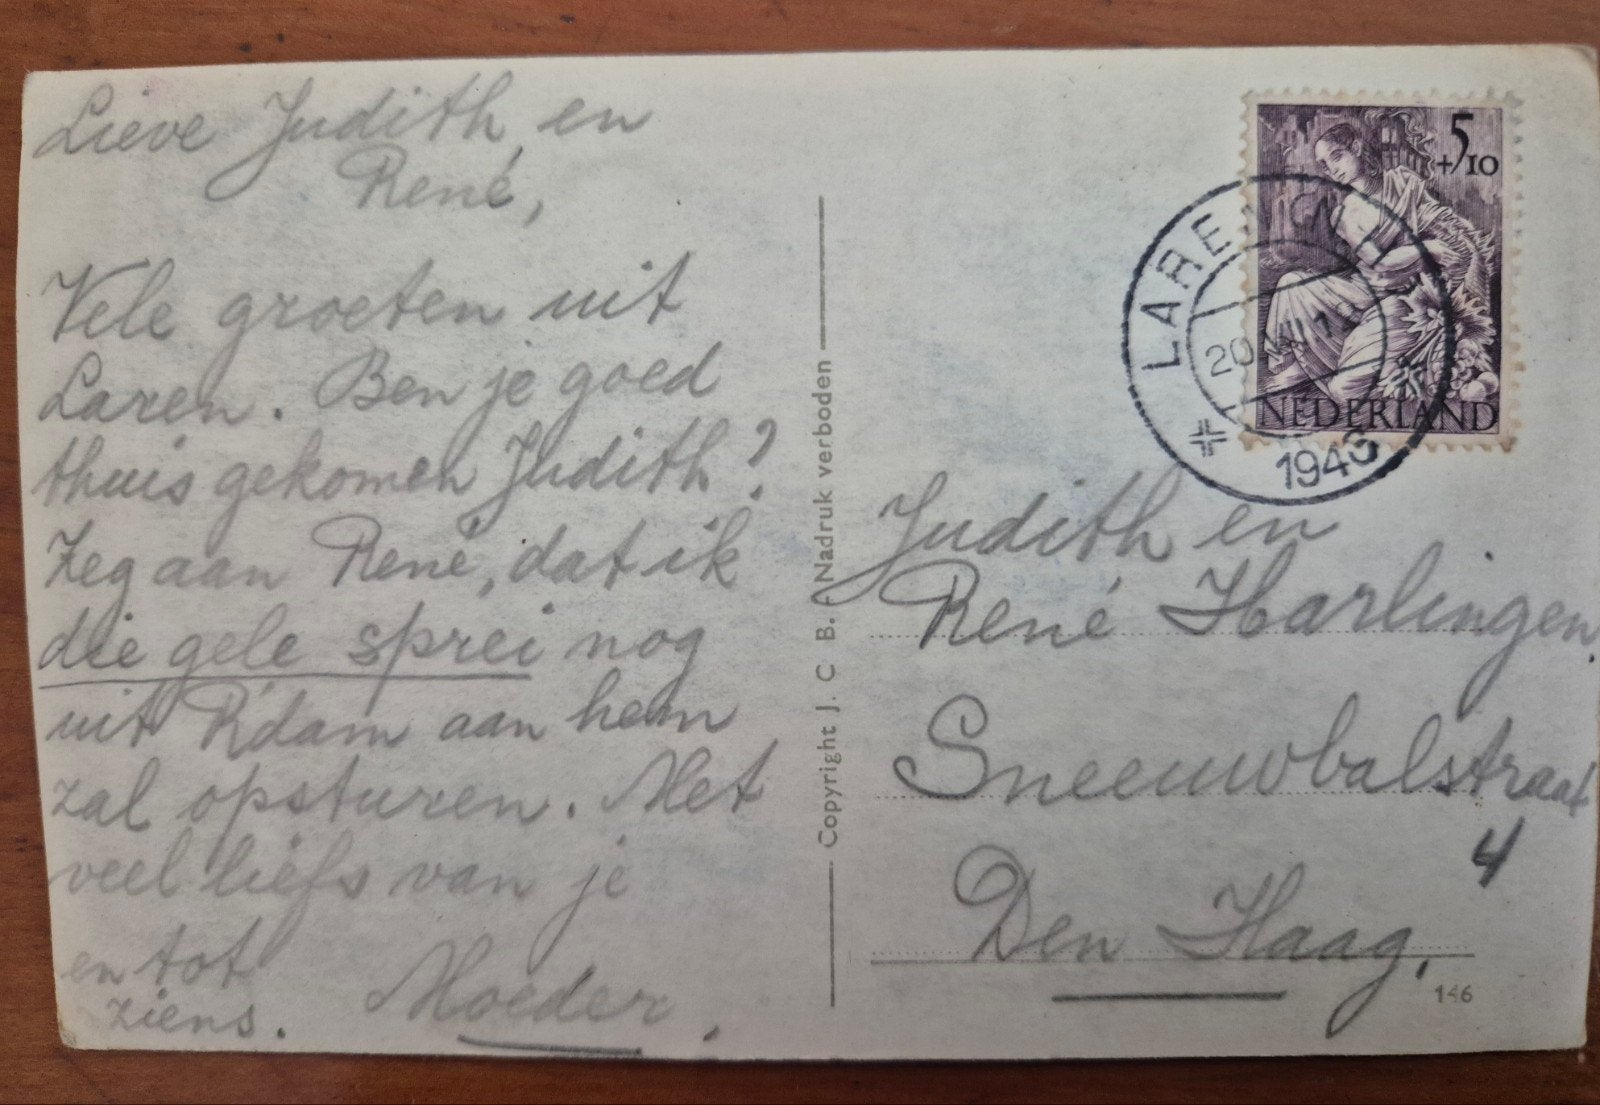 Lieve Judith en
René,
Vele groeten uit
Laren. Ben je goed
thuis gekomen Judith?
Zeg aan René, dat ik
die gele sprei nog
uit R'dam aan hem
zal opsturen. Met
veel liefs van je
en tot
ziens. Moeder.
Copyright J. C. B. - Nadruk verboden
5
+10
NEDERLAND
LAREN
20
1946
Judith en
René Harlingen.
Sneeuwbalstraat
4
Den Haag.
146